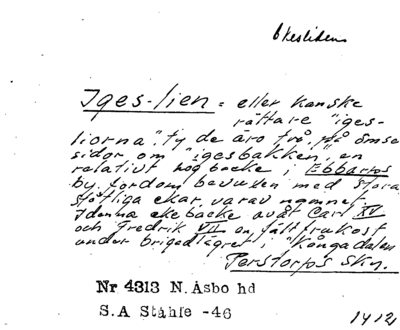 Ekesliden
Iges-lien = eller kanske
rättare "iges-
liorna". ty de äro två, på ömse
sidor om "igesbakken", en
relativt hög backe i Ebbarps
by, fordom bevuxen med stora
ståtliga ekar, varav namnet.
I denna ekebacke åvåt Carl XV
och Fredrik VII en fältfrukost
under brigadlägret i "Kångadalen
Perstorps skn.
Nr 4313 N. Åsbo hd
S.A Ståhle -46
1412